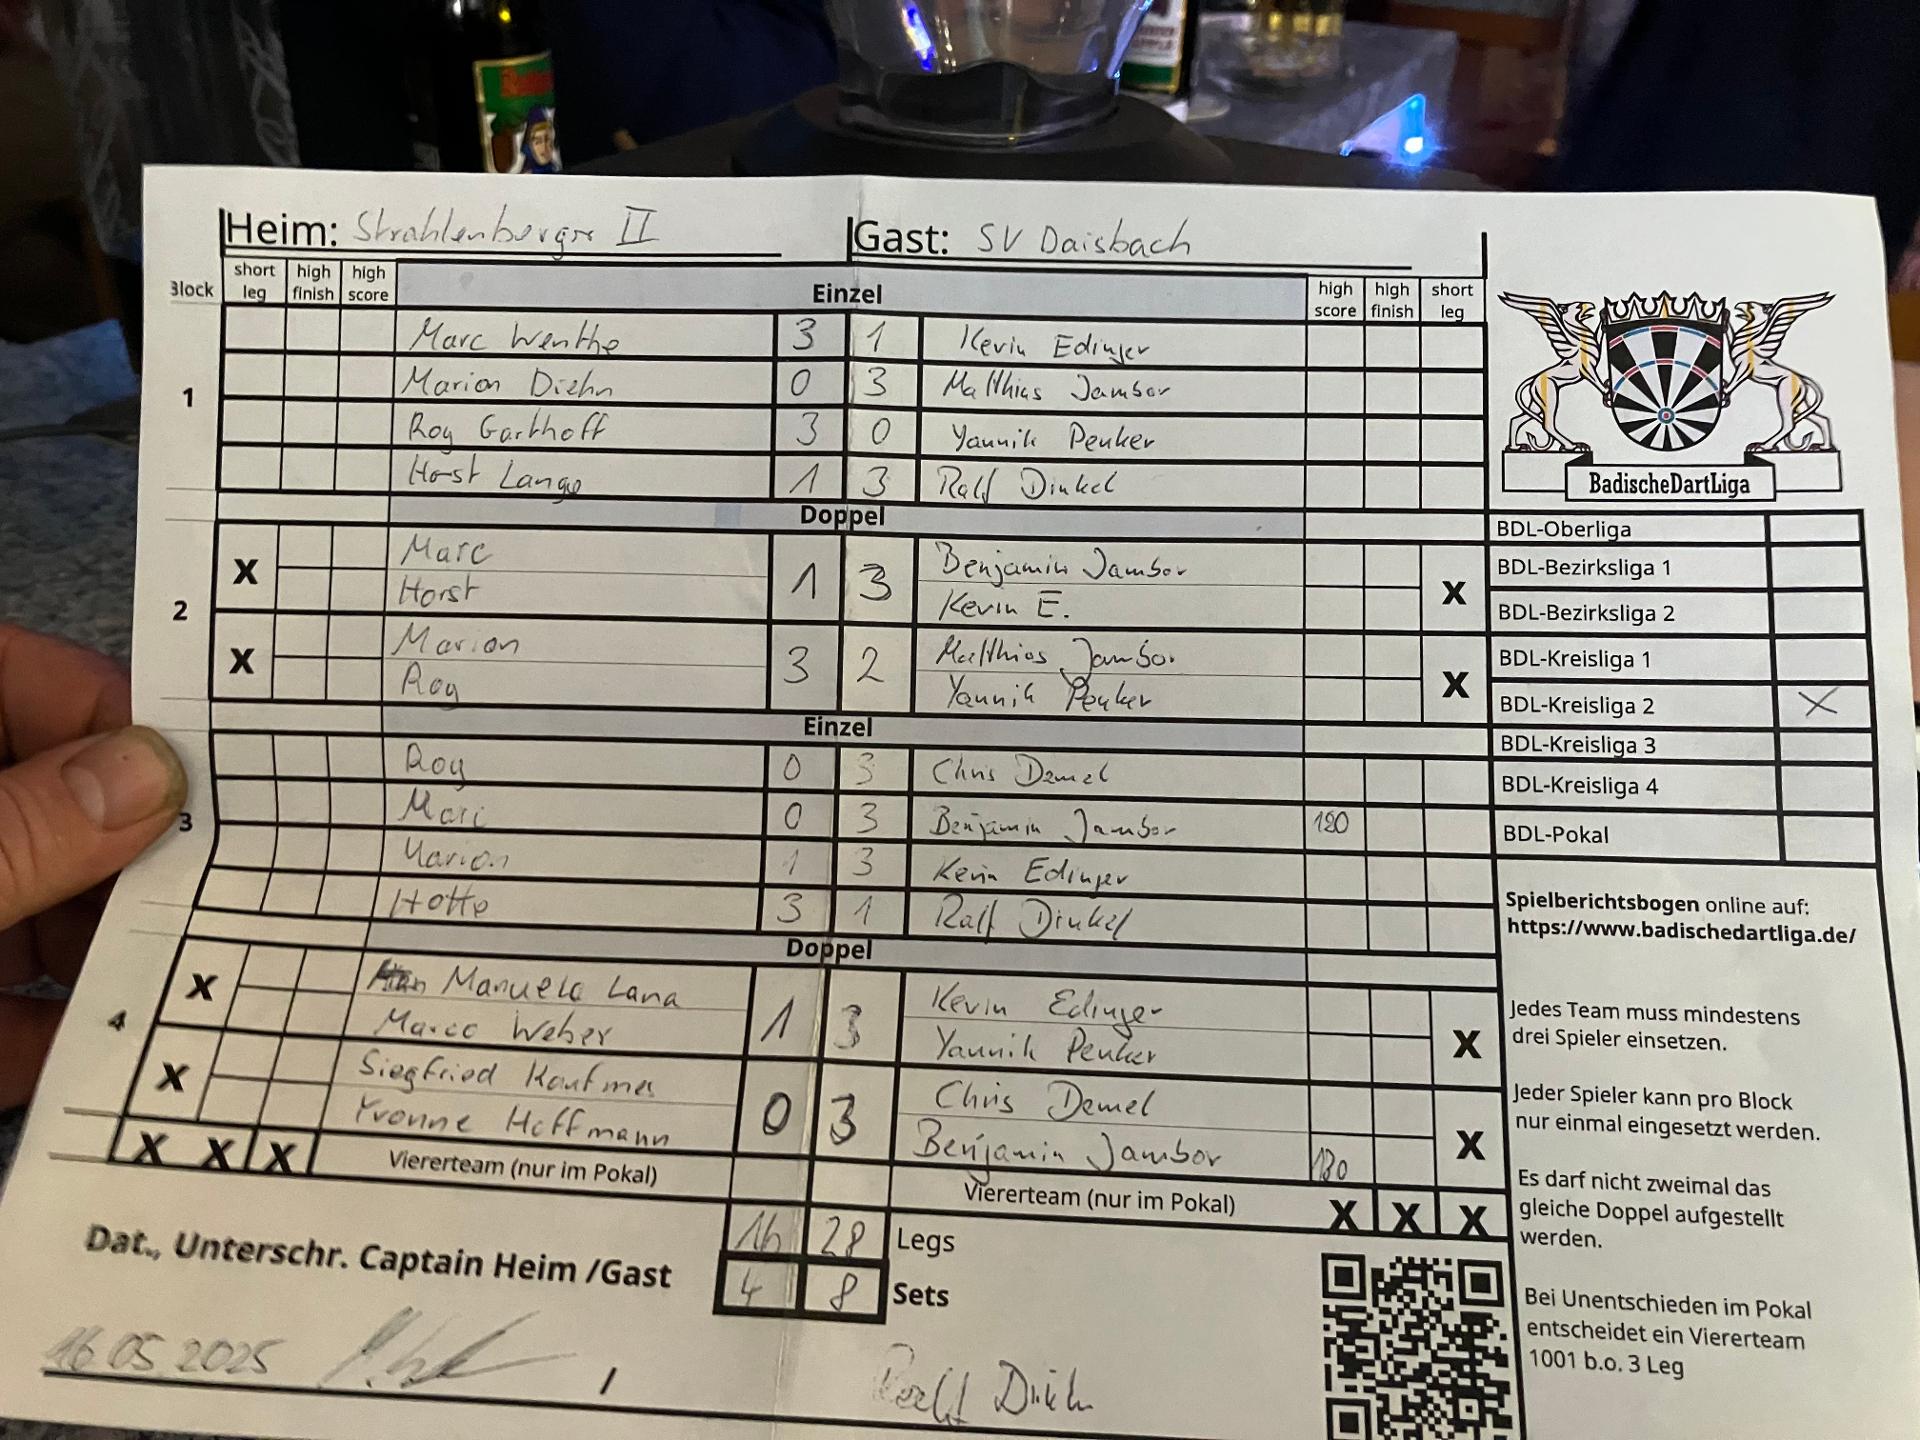 Heim: Strahlenberger II Gast: SV Daisbach
Block short leg high finish high score Einzel high score high finish short leg
1
Marc Wenthe 3 1 Kevin Edinger
Marion Diehn 0 3 Matthias Jambor
Roy Garthoff 3 0 Yannik Penker
Horst Lange 1 3 Ralf Dinkel
Doppel
2
X Marc 1 3 Benjamin Jambor X
Horst Kevin E.
X Marion 3 2 Matthias Jambor X
Roy Yannik Penker
Einzel
3
Roy 0 3 Chris Demel
Marc 0 3 Benjamin Jambor 180
Marion 1 3 Kevin Edinger
Hotte 3 1 Ralf Dinkel
Doppel
4
X Manuela Lana 1 3 Kevin Edinger X
Marco Weber Yannik Penker
X Siegfried 0 3 Chris Demel X
Yvonne Hoffmann Benjamin Jambor 180
X X X Viererteam (nur im Pokal) Viererteam (nur im Pokal) X X X
16 28 Legs
4 8 Sets
Dat., Unterschr. Captain Heim /Gast
16.05.2025 /
BadischeDartLiga
BDL-Oberliga
BDL-Bezirksliga 1
BDL-Bezirksliga 2
BDL-Kreisliga 1
BDL-Kreisliga 2 X
BDL-Kreisliga 3
BDL-Kreisliga 4
BDL-Pokal
Spielberichtsbogen online auf:
https://www.badischedartliga.de/
Jedes Team muss mindestens
drei Spieler einsetzen.
Jeder Spieler kann pro Block
nur einmal eingesetzt werden.
Es darf nicht zweimal das
gleiche Doppel aufgestellt
werden.
Bei Unentschieden im Pokal
entscheidet ein Viererteam
1001 b.o. 3 Leg